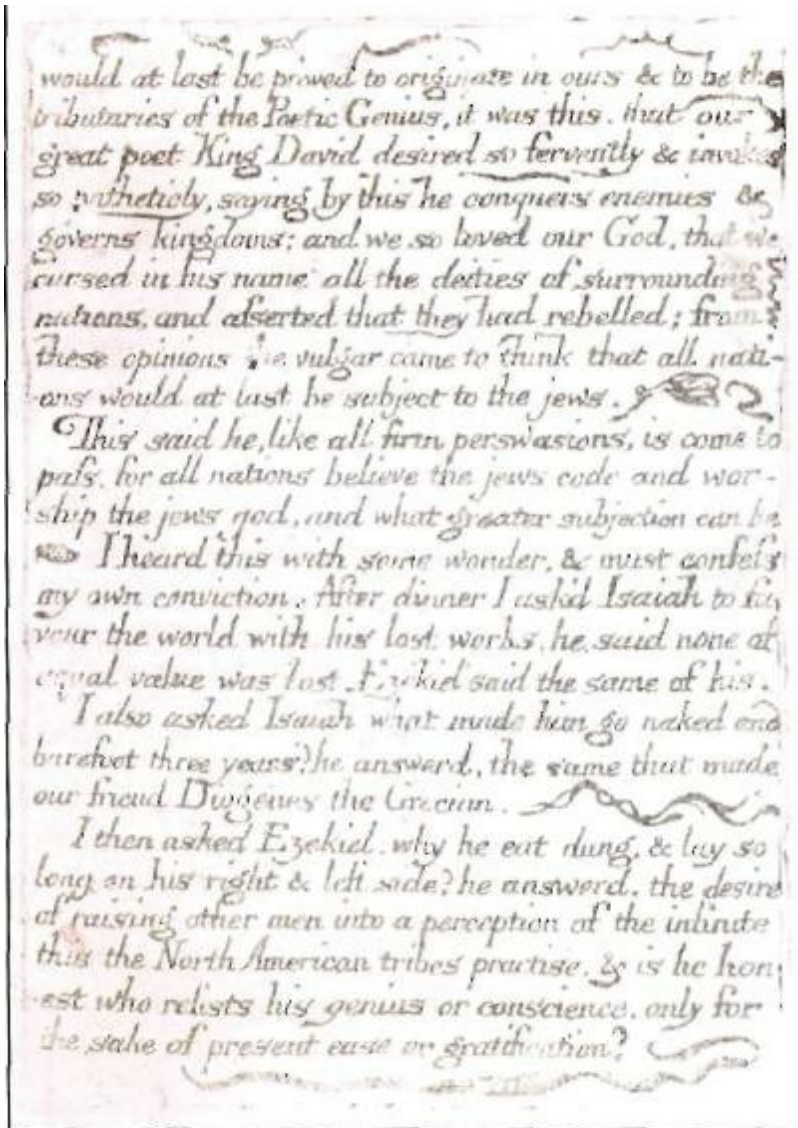 would at last be proved to originate in ours & to be the
tributaries of the Poetic Genius, it was this. that our
great poet King David desired so fervently & invokes
so patheticly, saying by this he conquers enemies &
governs kingdoms; and we so loved our God, that we
cursed in his name all the deities of surrounding
nations, and asserted that they had rebelled; from
these opinions the vulgar came to think that all nati-
-ons would at last be subject to the jews.
This said he, like all firm perswasions, is come to
pass, for all nations believe the jews code and wor-
ship the jews god, and what greater subjection can be
I heard this with some wonder, & must confess
my own conviction. After dinner I ask'd Isaiah to fa-
vour the world with his lost works, he said none of
equal value was lost. Ezekiel said the same of his.
I also asked Isaiah what made him go naked and
barefoot three years? he answerd, the same that made
our friend Diogenes the Grecian.
I then asked Ezekiel. why he eat dung, & lay so
long on his right & left side? he answerd. the desire
of raising other men into a perception of the infinite
this the North American tribes practise. & is he hon-
-est who resists his genius or conscience. only for
the sake of present ease or gratification?